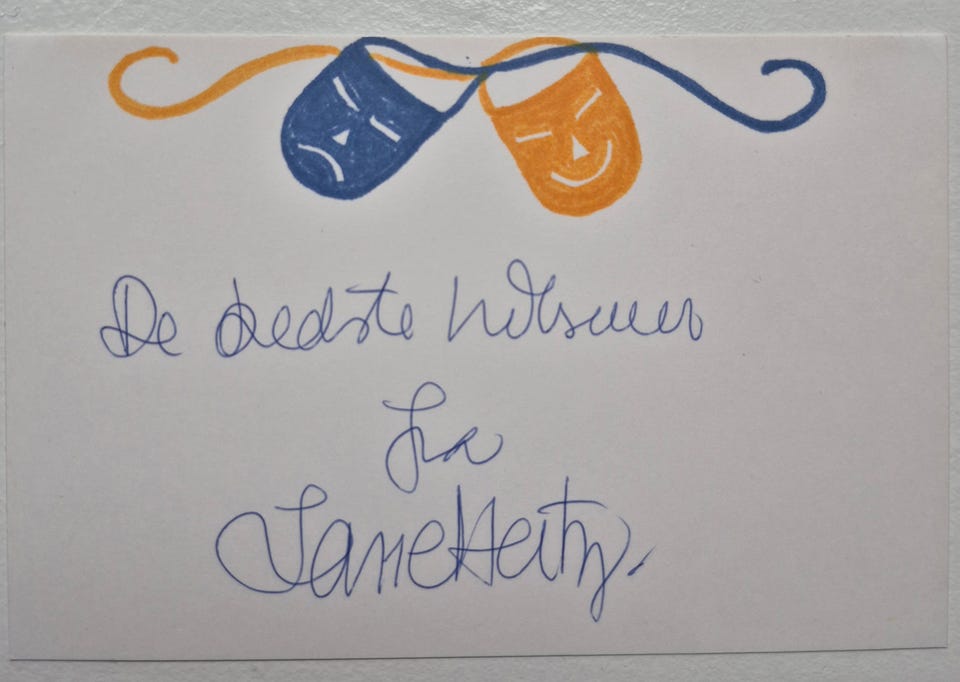 De bedste hilsener
fra
Janne Heitz.